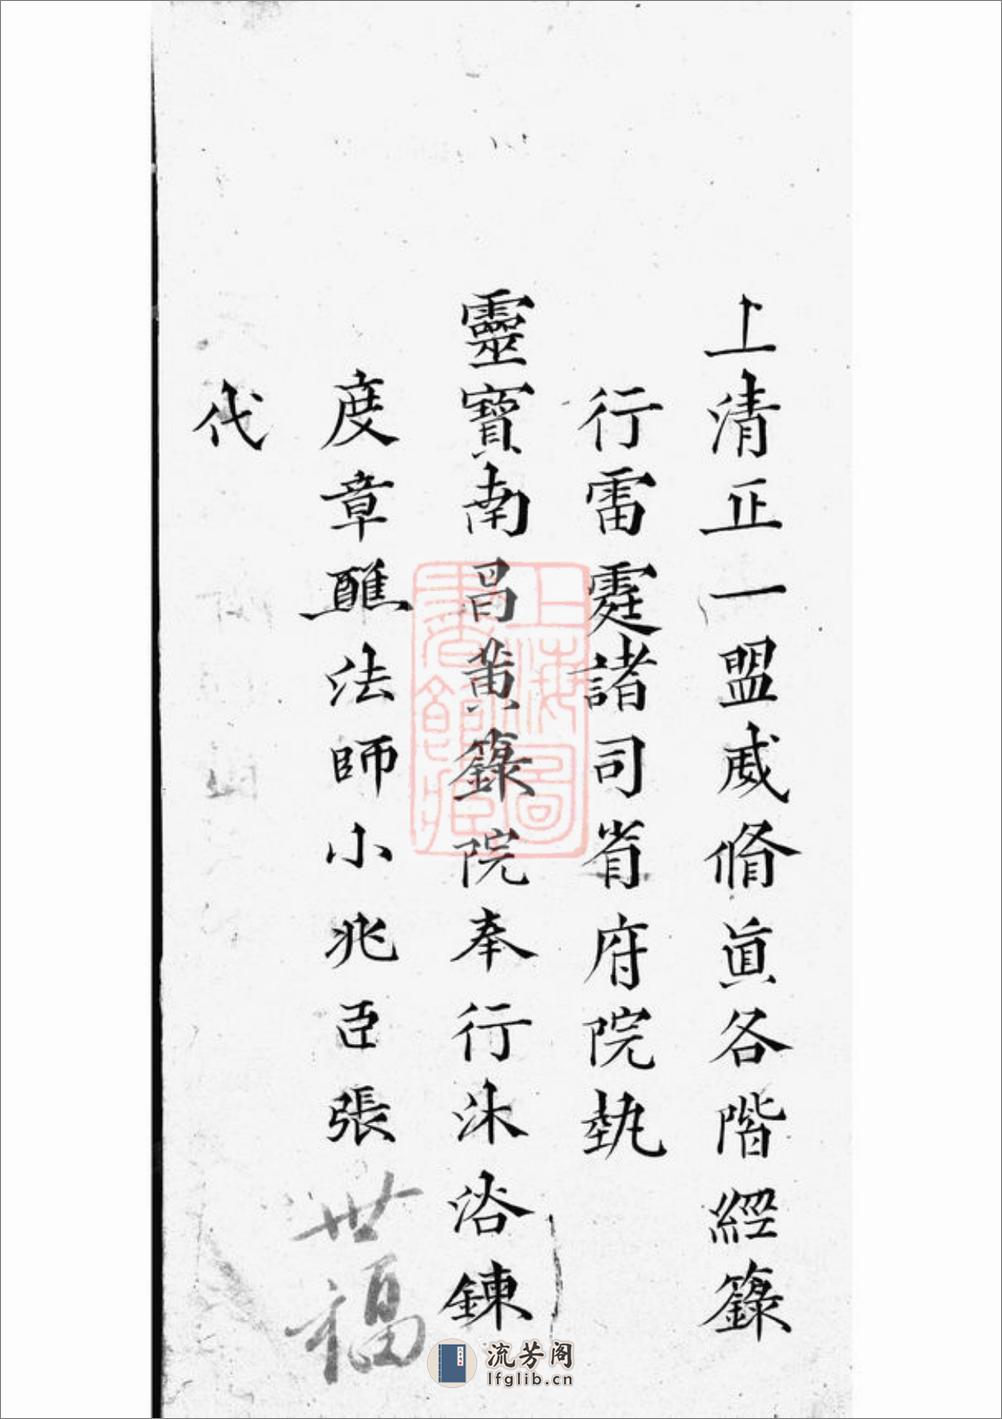 上清正一盟威脩眞各階經籙
行雷霆諸司省府院執
靈寳南昌黄籙院奉行沐浴鍊
度章醮法師小兆臣張世福
代
上海圖
書館藏
流芳阁
lfglib.cn